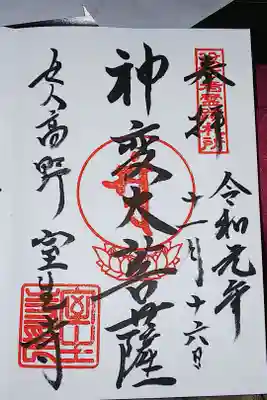 奉拝
令和元年
十一月十六日
神変大菩薩
女人高野 室生寺